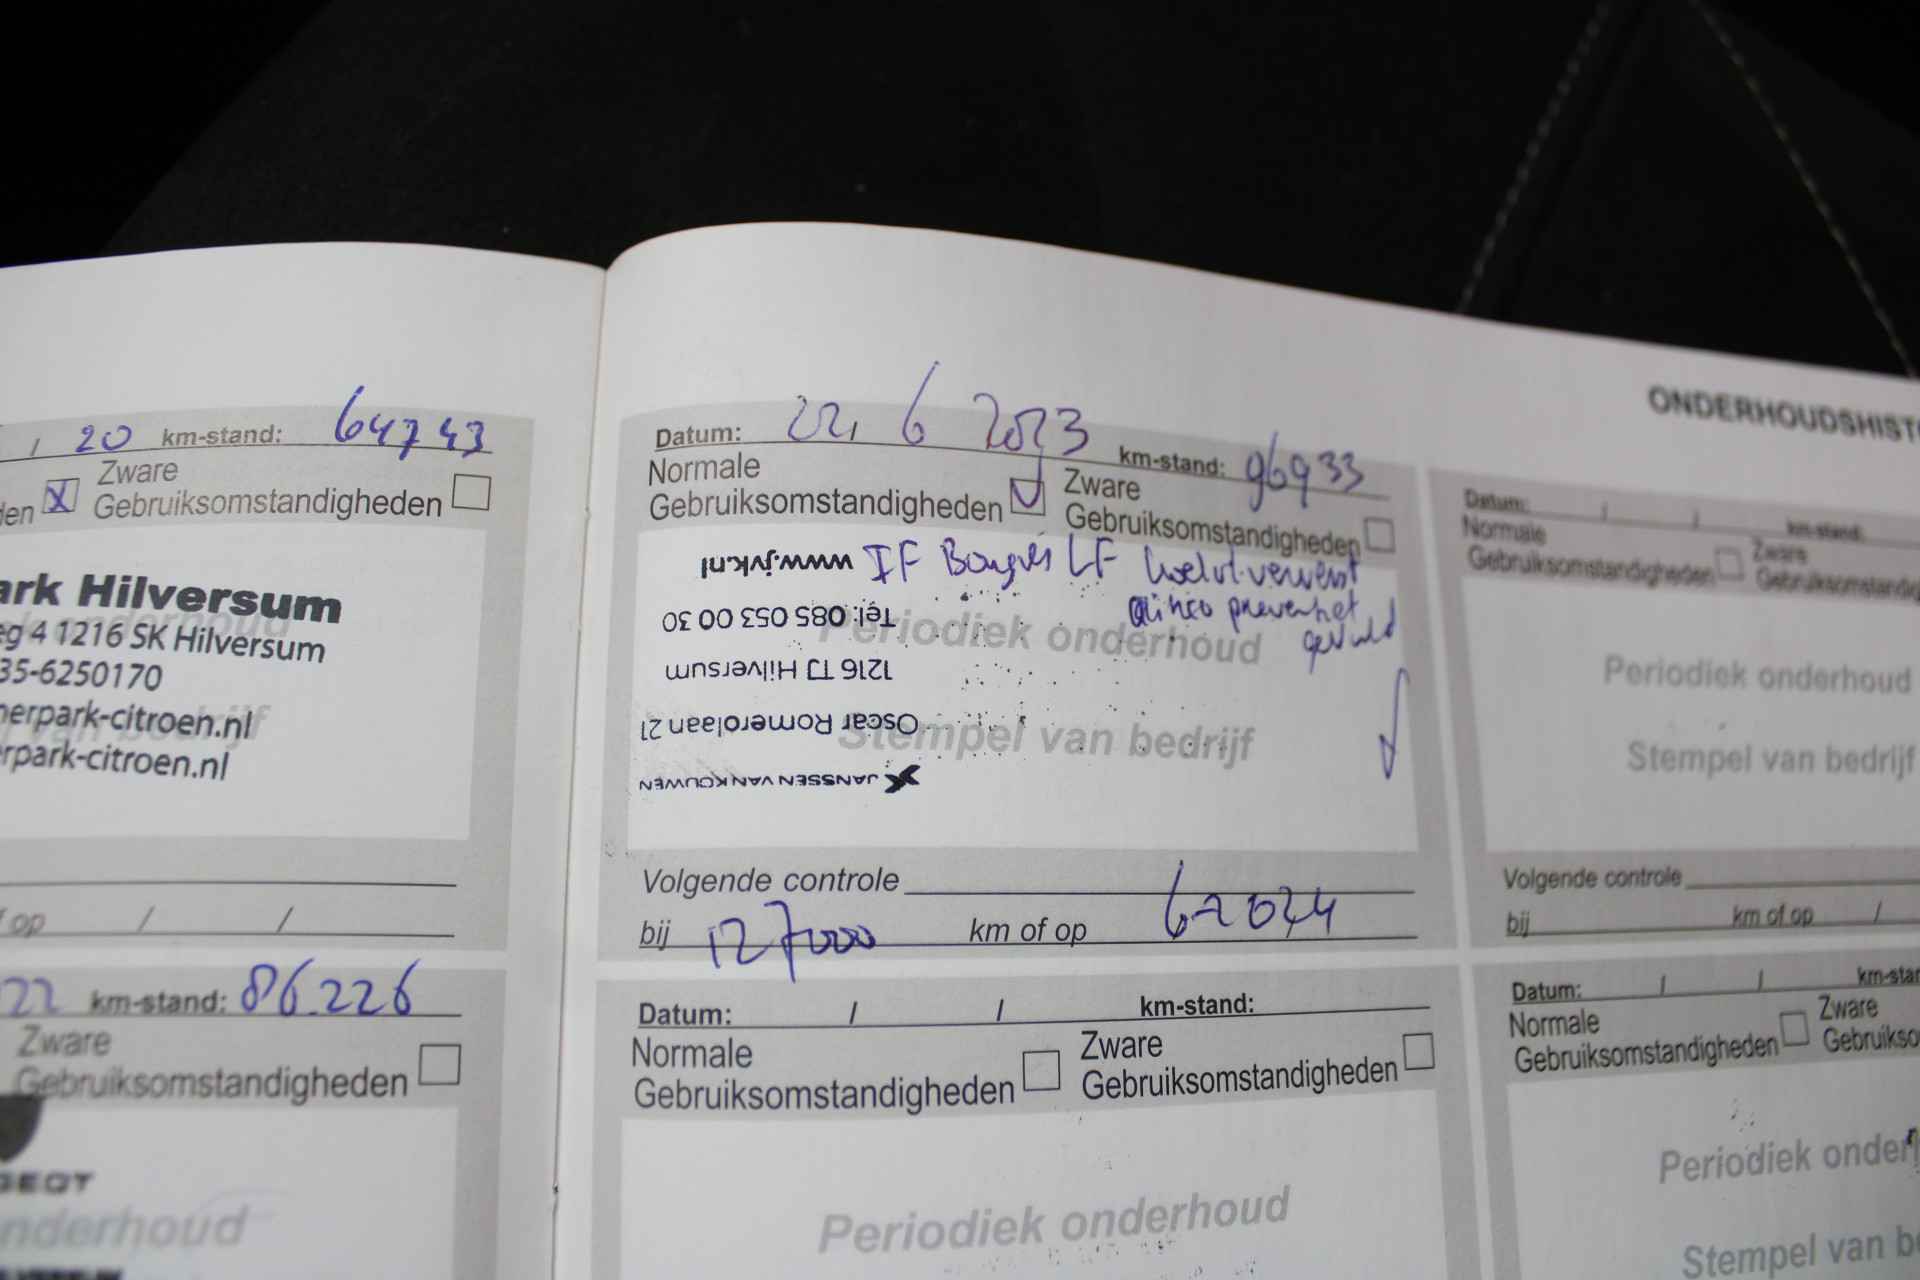 ONDERHOUDSHISTO
/ 20 km-stand: 64743
Zware
den X Gebruiksomstandigheden
ark Hilversum
eg 4 1216 SK Hilversum
35-6250170
nerpark-citroen.nl
erpark-citroen.nl
of op / /
22 km-stand: 86.226
Zware
Gebruiksomstandigheden
GEOT
nderhoud
Datum: 22, 6 2023 km-stand: 96933
Normale
Gebruiksomstandigheden
Zware
Gebruiksomstandigheden
IF Bougies LF
gevuld
Periodiek onderhoud
Stempel van bedrijf
www.jvk.nl
Tel: 085 053 00 30
1216 TJ Hilversum
Oscar Romerolaan 21
JANSSEN VAN KOUWEN
Volgende controle
bij 127000 km of op
Datum: / / km-stand:
Normale
Gebruiksomstandigheden
Zware
Gebruiksomstandigheden
Periodiek onderhoud
Datum: / / km-stand:
Normale
Gebruiksomstandigheden
Zware
Gebruiksomstandig
Periodiek onderhoud
Stempel van bedrijf
Volgende controle
bij km of op /
Datum: / / km-star
Normale
Gebruiksomstandigheden
Zware
Gebruikso
Periodiek onder
Stempel van be